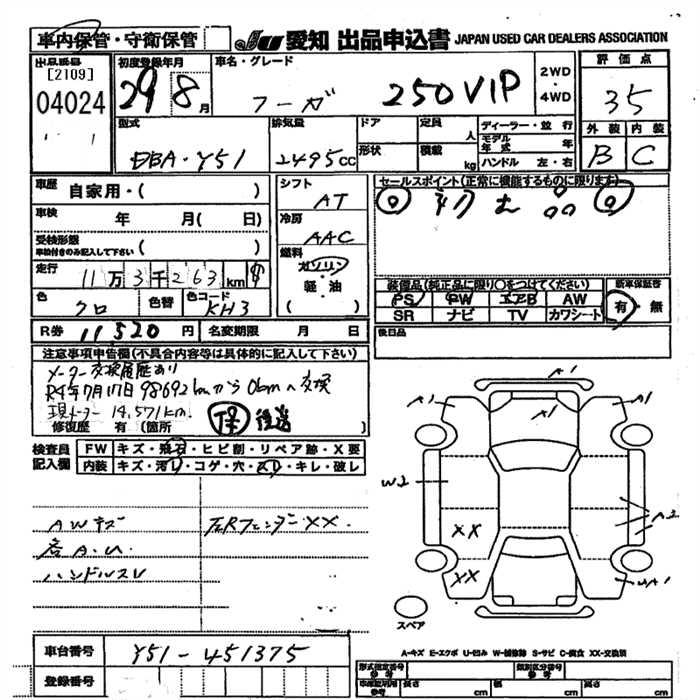 車内保管・守衛保管
JU 愛知 出品申込書 JAPAN USED CAR DEALERS ASSOCIATION
出品番号 [2109] 04024
初度登録年月 29年 8月
車名・グレード フーガ 250VIP
2WD・4WD
評価点 3.5
外装 B 内装 C
型式 DBA-Y51
排気量 2495cc
ドア 形状
定員 人 積載 kg
ディーラー・並行
モデル年式 年
ハンドル 左・右
車歴 自家用・( )
車検 年 月( 日)
受検形態 ※車検付きのみ記入して下さい ( )
走行 11万3千263km
色 クロ 色替 色コード KH3
R券 11520円 名変期限 月 日
シフト AT
冷房 AAC
燃料 ガソリン・軽油 ( )
セールスポイント(正常に機能するものに限ります)
◎初出品◎
装備品(純正品に限り○をつけてください)
PS PW エアB AW
SR ナビ TV カワシート
新車保証書 有・無
後日品
注意事項申告欄(不具合内容等は具体的に記入して下さい)
メーター交換履歴あり
R4年7月17日 98692kmから0kmへ交換
現メーター 14,571km
修復歴 有(箇所 保 後送
検査員記入欄
FW キズ・飛石・ヒビ割・リペア跡・X要
内装 キズ・汚レ・コゲ・穴・スレ・キレ・破レ
AWキズ 左Rフェンダー XX.
各A.U.
ハンドルスレ
A1
A1 A1 A1
W2 A2
XX
XX UA1
スペア
A-キズ E-エクボ U-凹み W-補修跡 S-サビ C-腐食 XX-交換済
車台番号 Y51-451375
登録番号
形式指定番号 参考 類別区分番号 参考
車庫証明用 参考 長さ cm 幅 cm 高さ cm